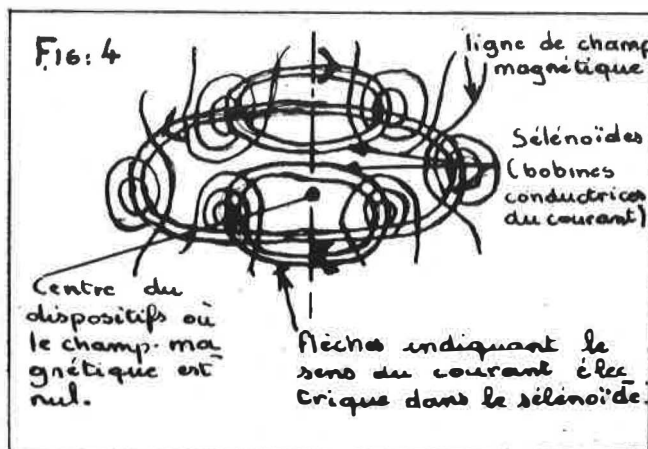 FIG: 4
ligne de champ
magnétique
Sélénoïdes
(bobines
conductrices
du courant)
Centre du
dispositifs où
le champ-ma
gnétique est
nul.
flèches indiquant le
sens du courant élec
trique dans le sélénoïde.